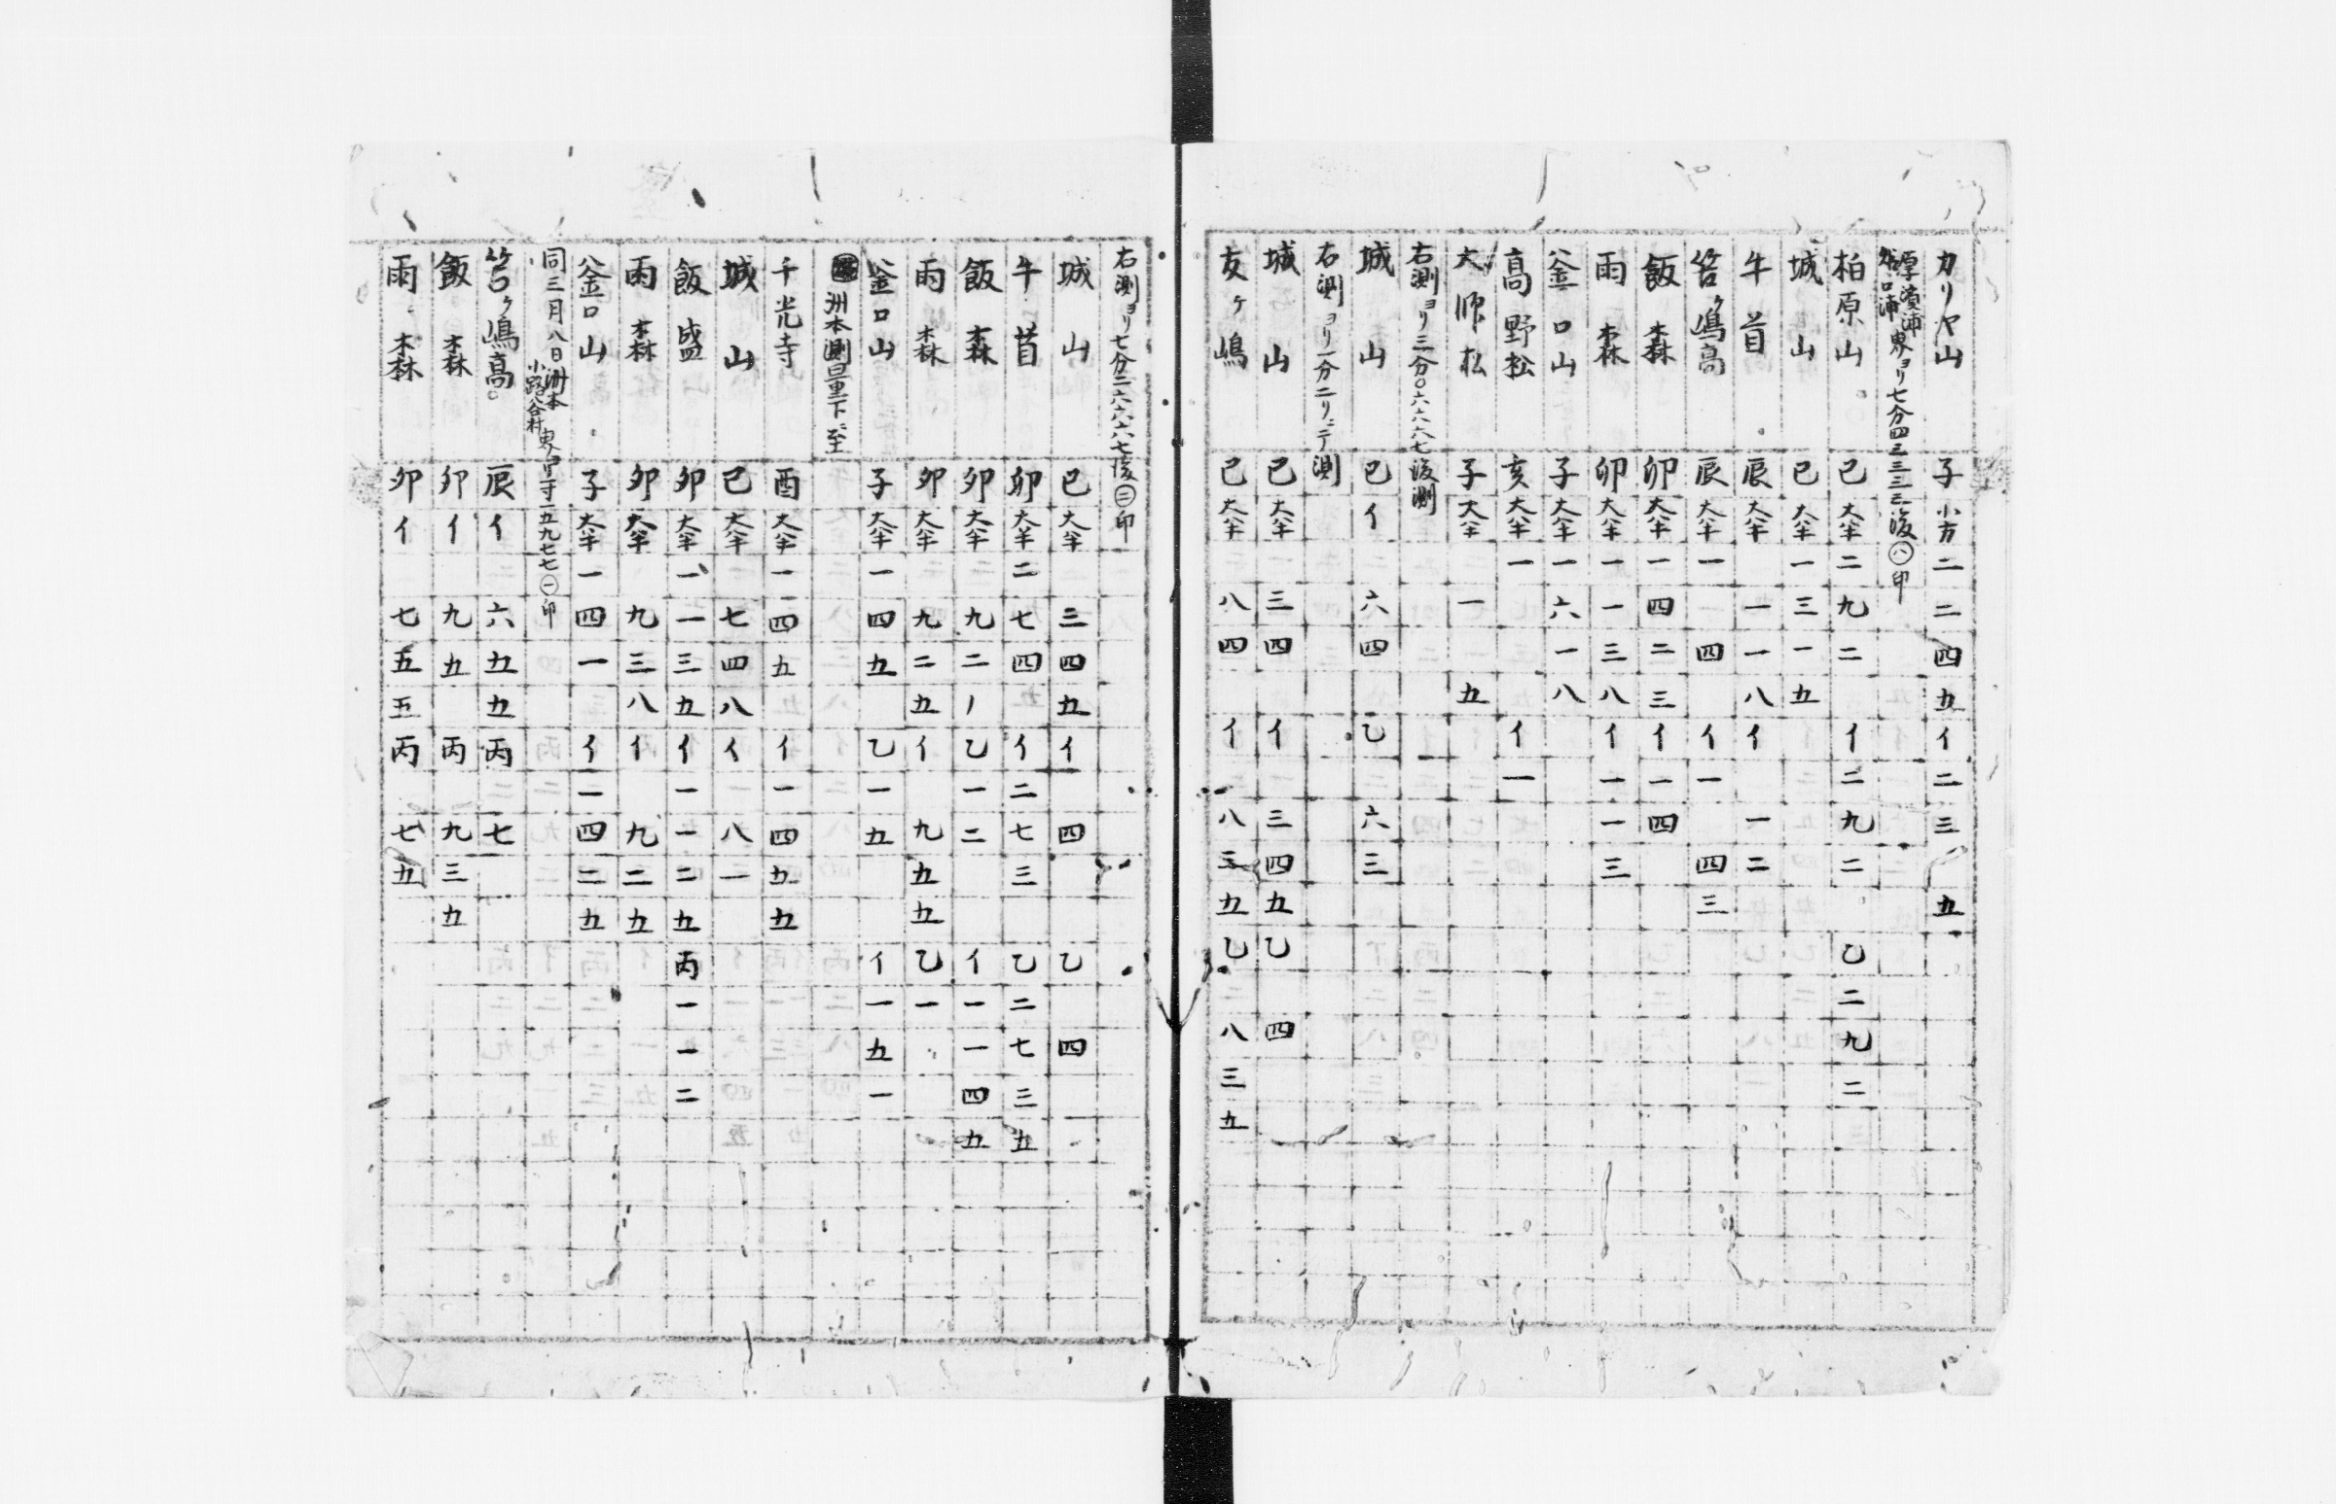 カリヤ山 子 小方 二 二 四 五 イ 二 三 五
厚濱浦 外口浦 界ヨリ七分四三三三三後㊇印
柏原山 巳 大半 二 九 二 イ 二 九 二 乙 二 九 二
城山 巳 大半 一 三 一 五
牛首 辰 大半 一 一 八 イ 一 二
笘ケ嶋高 辰 大半 一 四 イ 一 四 三
飯森 卯 大半 一 四 二 三 イ 一 四
雨森 卯 大半 一 一 三 八 イ 一 一 三
釜口山 子 大半 一 六 一 八
高野松 亥 大半 一 イ 一
大師松 子 大半 一 五
右測ヨリ三分〇六六六七後測
城山 巳 イ 六 四 乙 六 三
右測ヨリ一分二リニテ測
城山 巳 大半 三 四 イ 三 四 五 乙 四
友ケ嶋 巳 大半 八 四 イ 八 三 五 乙 八 三 五
右測ヨリ七分二六六六七後㊂印
城山 巳 大半 三 四 五 イ 四 乙 四
牛首 卯 大半 二 七 四 イ 二 七 三 乙 二 七 三 五
飯森 卯 大半 九 二 乙 一 二 イ 一 一 四 五
雨森 卯 大半 九 二 五 イ 九 五 五 乙 一
釜口山 子 大半 一 四 五 乙 一 五 イ 一 五 一
洲本測量下ニ至
千光寺 酉 大半 一 四 五 イ 一 四 五 五
城山 巳 大半 七 四 八 イ 八 一
飯盛 卯 大半 一 一 三 五 イ 一 一 二 五 丙 一 一 二
雨森 卯 大半 九 三 八 イ 九 二 五
釜口山 子 大半 一 四 一 イ 一 四 二 五
同三月八日洲本 小路谷村 界ヨリ一寸一五九七七㊀印
笘ケ嶋高 辰 イ 六 五 五 丙 七
飯森 卯 イ 九 五 丙 九 三 五
雨森 卯 イ 七 五 五 丙 七 五